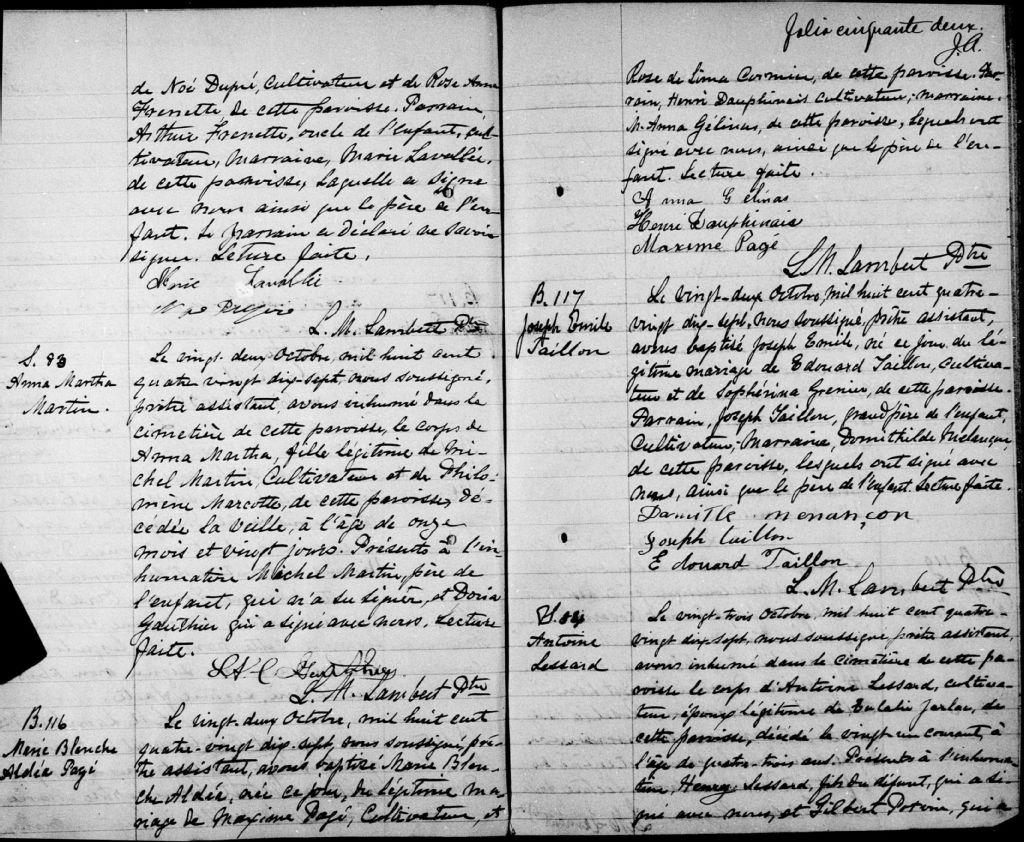 de Noé Dupré, Cultivateur et de Rose Anna
Frenette, de cette paroisse. Parrain,
Arthur Frenette, oncle de l'enfant, cul-
tivateur, Marraine, Marie Lavallée,
de cette paroisse, laquelle a signé
avec nous ainsi que le père de l'en-
fant. Le parrain a déclaré ne savoir
signer. Lecture faite.
Marie Lavallée
L. M. Lambert Ptre
S. 83
Anna Martha
Martin.
Le vingt-deux Octobre, mil huit cent
quatre vingt dix-sept, nous soussigné,
prêtre assistant, avons inhumé dans le
cimetière de cette paroisse, le corps de
Anna Martha, fille légitime de Mi-
chel Martin, Cultivateur et de Philo-
mène Marcotte, de cette paroisse, dé-
cédée la veille, à l'âge de onze
mois et vingt jours. Présents à l'in-
humation Michel Martin, père de
l'enfant, qui n'a su signer, et Doria
Gauthier qui a signé avec nous. Lecture
faite.
L. M. Lambert Ptre
B. 116
Marie Blanche
Aldéa Pagé
Le vingt-deux Octobre, mil huit cent
quatre-vingt dix-sept, nous soussigné, prê-
tre assistant, avons baptisé Marie Blan-
che Aldéa, née ce jour, du légitime ma-
riage de Maxime Pagé, Cultivateur, et
Folio cinquante deux.
J.A.
Rose de Lima Cormier, de cette paroisse. Par-
rain, Henri Dauphinais Cultivateur; marraine,
M. Anna Gélinas, de cette paroisse, lesquels ont
signé avec nous, ainsi que le père de l'en-
fant. Lecture faite.
Anna Gélinas
Henri Dauphinais
Maxime Pagé
L. M. Lambert Ptre
B. 117
Joseph Emile
Taillon
Le vingt-deux Octobre, mil huit cent quatre-
vingt dix-sept, nous soussigné, prêtre assistant,
avons baptisé Joseph Emile, né ce jour du lé-
gitime mariage de Edouard Taillon, Cultiva-
teur et de Sophérina Grenier, de cette paroisse.
Parrain, Joseph Taillon, grand père de l'enfant,
Cultivateur; Marraine, Domithilde
de cette paroisse, lesquels ont signé avec
nous, ainsi que le père de l'enfant. Lecture faite.
Joseph Taillon
Edouard Taillon
L. M. Lambert Ptre
S. 84
Antoine
Lessard
Le vingt-trois Octobre, mil huit cent quatre-
vingt dix-sept, nous soussigné prêtre assistant,
avons inhumé dans le cimetière de cette pa-
roisse le corps d'Antoine Lessard, cultiva-
teur, époux légitime de Eulalie, de
cette paroisse, décédé le vingt-un courant, à
l'âge de quatre-trois ans. Présents à l'inhuma-
tion, Henry Lessard, fils du défunt, qui a si-
gné avec nous, et Gilbert Potvin, qui a